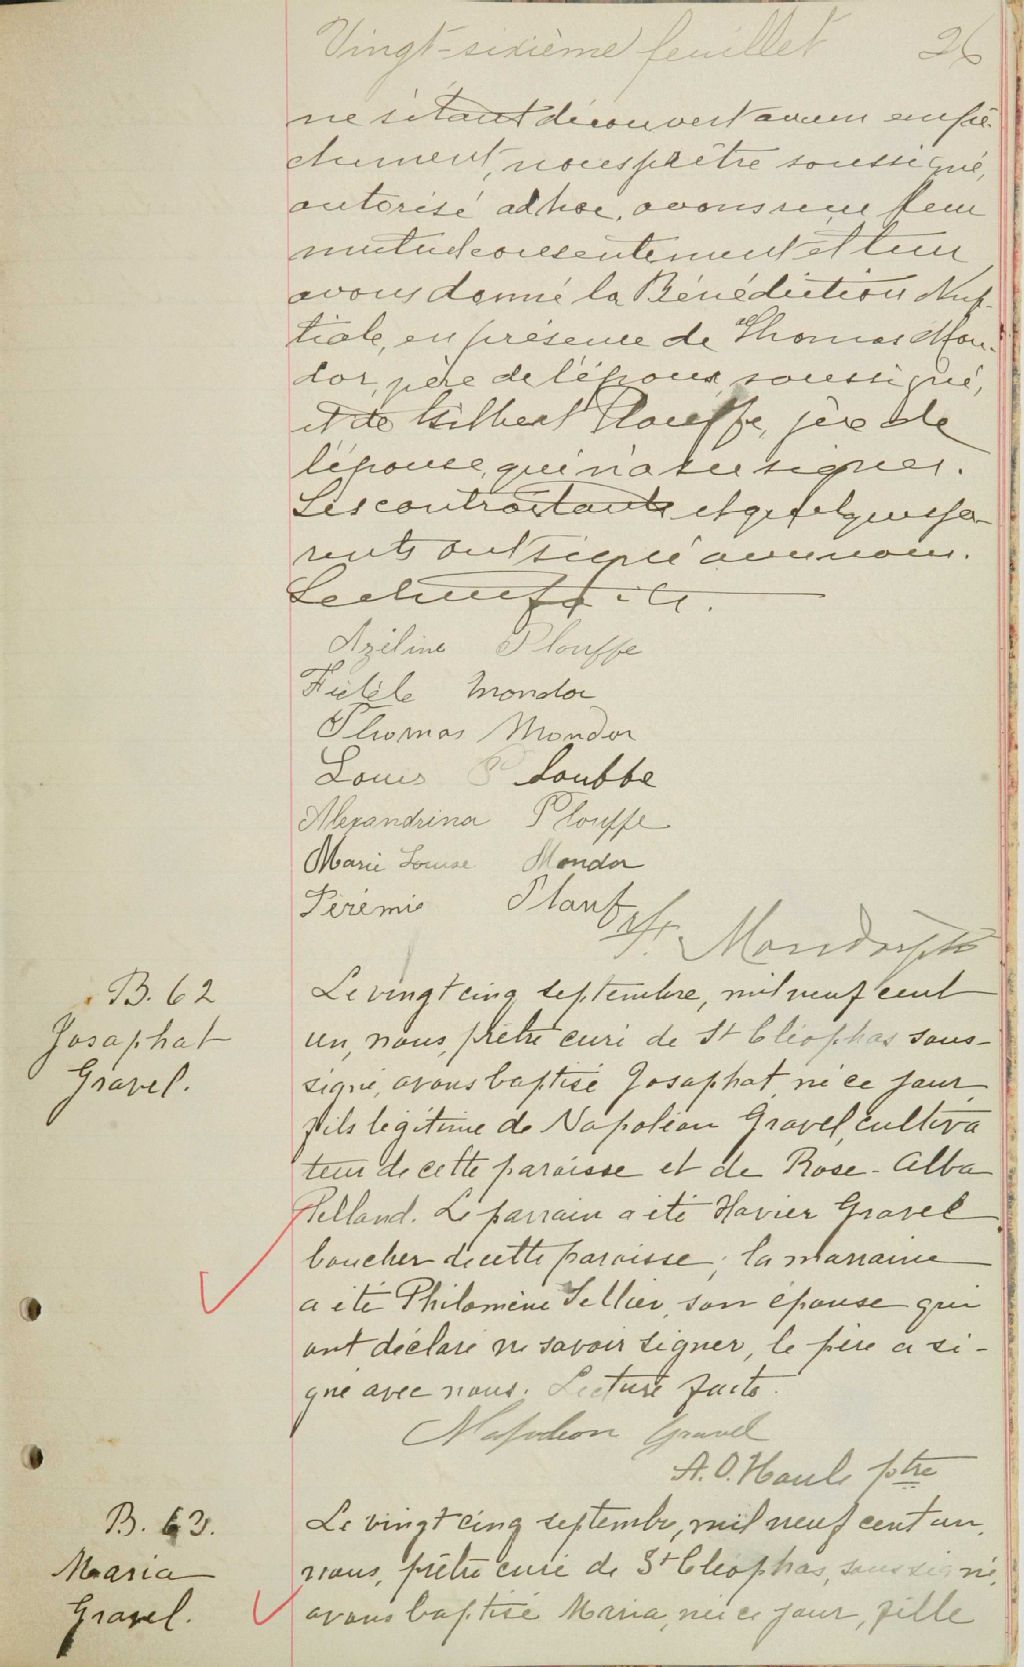 Vingt-sixième feuillet 26
ne s'étant découvert aucun empê-
chement, nous prêtre soussigné,
autorisé ad hoc, avons reçu leur
mutuel consentement et leur
avons donné la Bénédiction Nup-
tiale, en présence de Thomas Mon-
dor, père de l'époux soussigné,
et de Gilbert Plouffe, père de
l'épouse, qui n'a su signer.
Les contractants et quelques pa-
rents ont signé avec nous.
Lecture faite.
Azéline Plouffe
Fidèle Mondor
Thomas Mondor
Louis Plouffe
Alexandrina Plouffe
Marie Louise Mondor
Jérémie Plouf
Mondor ptre
B. 62
Josaphat
Gravel.
Le vingt cinq septembre, mil neuf cent
un, nous, prêtre curé de St Cléophas sous-
signé, avons baptisé Josaphat, né ce jour,
fils légitime de Napoléon Gravel, cultiva
teur de cette paroisse et de Rose-Alba
Pelland. Le parrain a été Xavier Gravel
boucher de cette paroisse; la marraine
a été Philomène Tellier, son épouse qui
ont déclaré ne savoir signer, le père a si-
gné avec nous. Lecture faite.
Napoleon Gravel
A. O. Houle ptre
B. 63.
Maria
Gravel.
Le vingt cinq septembre, mil neuf cent un,
nous, prêtre curé de St Cléophas, soussigné,
avons baptisé Maria, née ce jour, fille